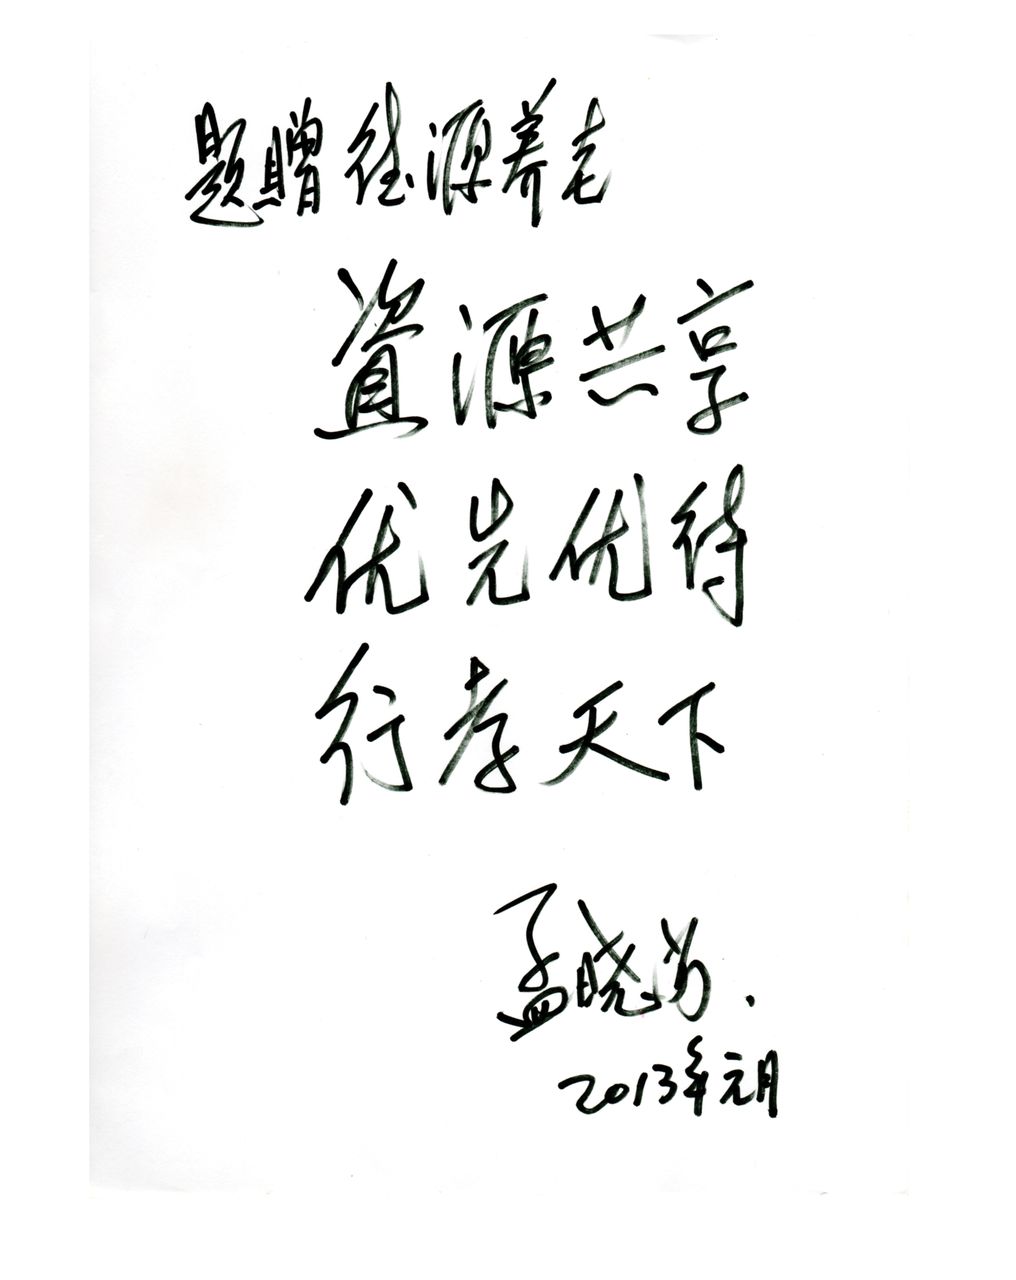 题赠 德源养老
资源共享
优先优待
行孝天下
孟晓苏.
2013年元月